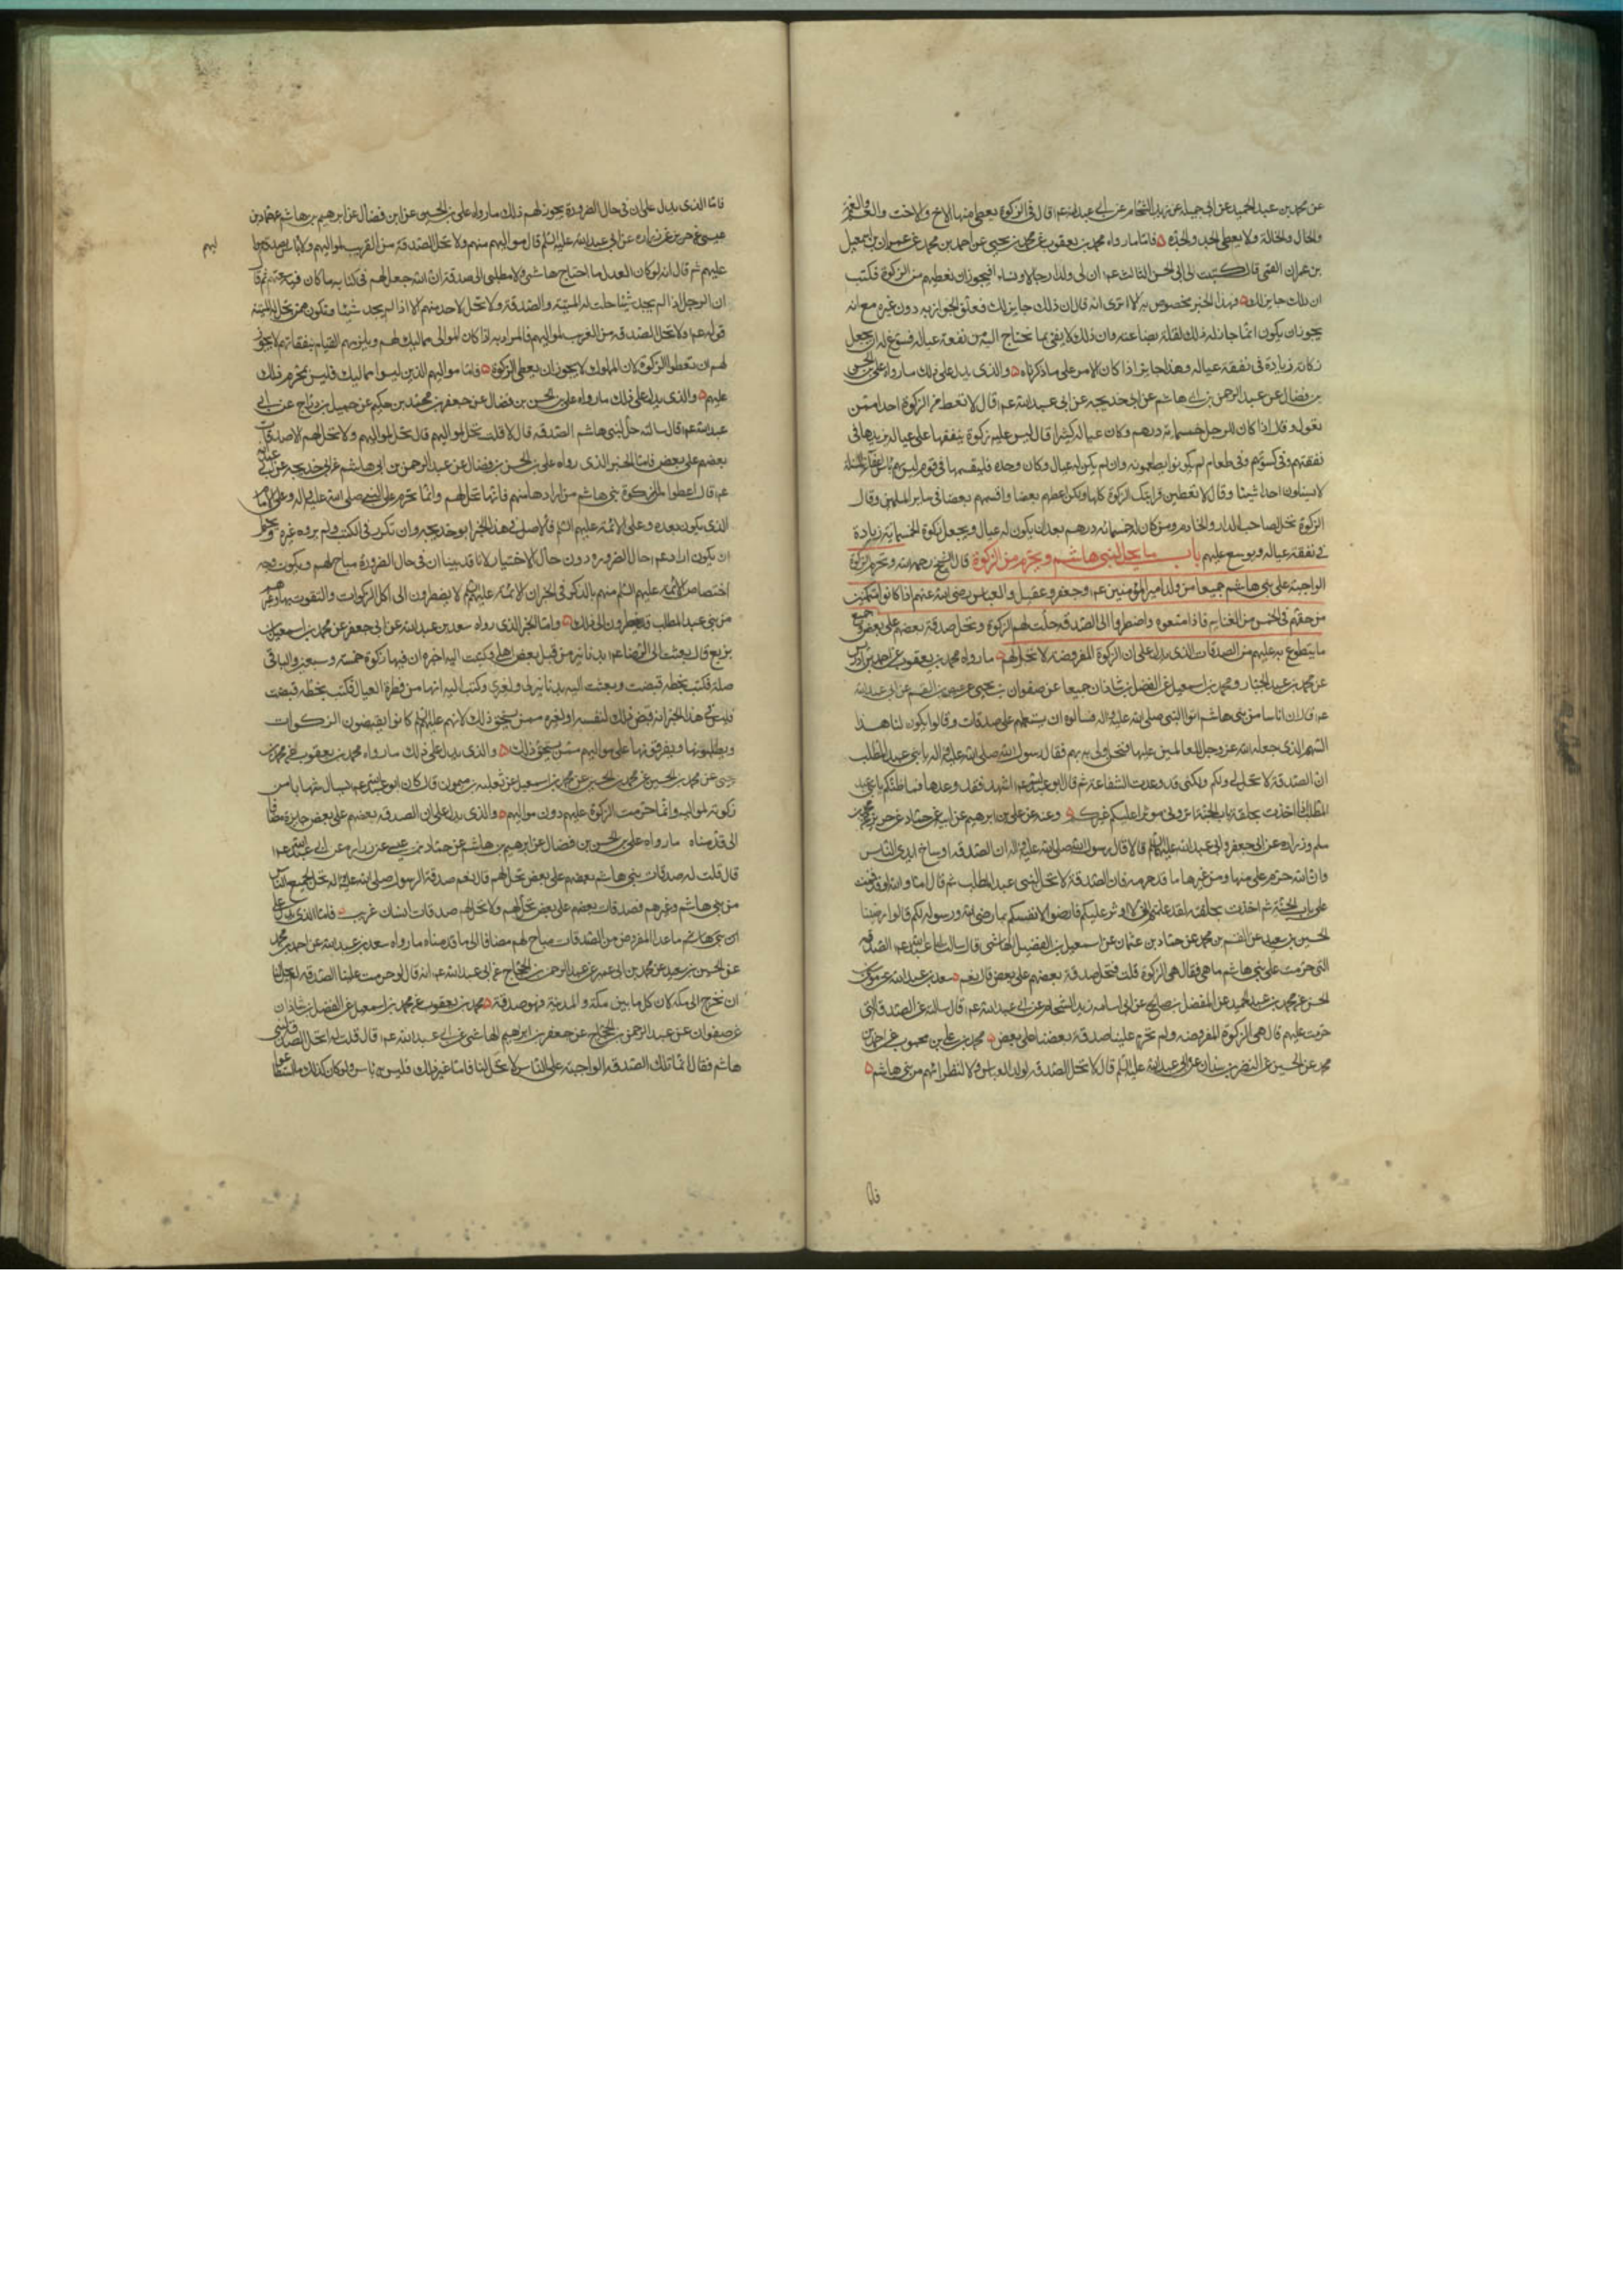 عن محمد بن عبد الحميد عن ابي جميلة عن زيد الشحام عن ابي عبد الله عم قال في الزكوة يعطى منها الاخ والاخت والعم والعمة
والخال والخالة ولا يعطى الجد والجدة فاما ما رواه محمد بن يعقوب عن محمد بن يحيى عن احمد بن محمد عن عمران بن اسمعيل
بن عمران القمي قال كتبت الى ابي الحسن الثالث عم ان لي ولدا رجالا ونساء افيجوز ان نعطيهم من الزكوة فكتب
ان ذلك جايز لك فهذا الخبر مخصوص به الا ترى انه قال ان ذلك جايز لك فعلق الجواز به دون غيره مع انه
يجوز ان يكون انما جاز له ذلك لقلة بضاعته وان ذلك لا يفي بما يحتاج اليه من نفقة عياله فسوغ له ان يجعل
زكاته زيادة في نفقة عياله وهذا جايز اذا كان الامر على ما ذكرناه والذي يدل على ذلك ما رواه علي بن الحسن
بن فضال عن عبد الرحمن بن ابي هاشم عن ابي خديجه عن ابي عبد الله عم قال لا تعط من الزكوة احدا ممن
تعول وقال اذا كان للرجل خمسمايه درهم وكان عياله كثيرا قال ليس عليه زكوة ينفقها على عياله يزيدها في
نفقتهم وفي كسوتهم وفي طعام لم يكونوا يطعمونه وان لم يكن له عيال وكان وحده فليقسمها في قوم ليس بهم باس
لا يسئلون احدا شيئا وقال لا تعطين قرابتك الزكوة كلها ولكن اعطهم بعضا واقسم بعضا في ساير المسلمين وقال
الزكوة تحل لصاحب الدار والخادم ومن كان له خمسمائه درهم بعد ان يكون له عيال ويجعل زكوة الخمسمايه زيادة
في نفقة عياله ويوسع عليهم باب ما يحل لبني هاشم ويحرم من الزكوة قال الشيخ رحمه الله وتحرم الزكوة
الواجبة على بني هاشم جميعا من ولد امير المؤمنين عم وجعفر وعقيل والعباس رضي الله عنهم اذا كانوا متمكنين
من حقهم في الخمس من الغنايم فاذا منعوه واضطروا الى الصدقه حلت لهم الزكوة وتحل صدقة بعضهم على بعض وجميع
ما يتطوع به عليهم من الصدقات الذي يدل على ان الزكوة المفروضه لا تحل لهم ما رواه محمد بن يعقوب عن احمد بن ادريس
عن محمد بن عبد الجبار ومحمد بن اسمعيل عن الفضل بن شاذان جميعا عن صفوان بن يحيى عن عيص بن القسم عن ابي عبد الله
عم قال ان اناسا من بني هاشم اتوا النبي صلى الله عليه واله فسالوه ان يستعملهم على صدقات وقالوا يكون لنا هذا
السهم الذي جعله الله عز وجل للعاملين عليها فنحن اولى به فقال رسول الله صلى الله عليه واله يا بني عبد المطلب
ان الصدقة لا تحل لي ولكم ولكني قد وعدت الشفاعة ثم قال ابو عبد الله عم اشهد لقد وعدها فما ظنكم يا بني عبد
المطلب اذا اخذت بحلقة باب الجنة اتروني موثرا عليكم غيركم وعنه عن علي بن ابرهيم عن ابيه عن حماد عن حريز عن محمد بن
مسلم وزراره عن ابي جعفر وابي عبد الله عليهما السلام قالا قال رسول الله صلى الله عليه واله ان الصدقه اوساخ ايدي الناس
وان الله حرم علي منها ومن غيرها ما قد حرمه فان الصدقة لا تحل لبني عبد المطلب ثم قال اما والله لو قد قمت
على باب الجنة ثم اخذت بحلقته لقد علمتم اني لا اوثر عليكم فارضوا لانفسكم بما رضي الله ورسوله لكم قالوا رضينا
الحسين بن سعيد عن القسم بن محمد عن حماد بن عثمان عن اسمعيل بن الفضيل الهاشمي قال سالت ابا عبد الله عم الصدقه
التي حرمت على بني هاشم ما هي فقال هي الزكوة قلت فتحل صدقة بعضهم على بعض قال نعم سعد بن عبد الله عن موسى بن
الحسن عن محمد بن عبد الحميد عن المفضل بن صالح عن ابي اسامه زيد الشحام عن ابي عبد الله عم قال سالته عن الصدقة التي
حرمت عليهم قال هي الزكوة المفروضه ولم تحرم علينا صدقة بعضنا على بعض محمد بن علي بن محبوب عن احمد بن
محمد عن الحسين عن النضر بن سنان عن ابي عبد الله عليه السلم قال لا تحل الصدقه لولد العباس ولا لنظرائهم من بني هاشم
فاما
فاما الذي يدل على ان في حال الضرورة يجوز لهم ذلك ما رواه علي بن الحسين عن ابن فضال عن ابرهيم بن هاشم عن حماد بن
عيسى عن حريز عن زراره عن ابي عبد الله عليه السلم قال مواليهم منهم ولا تحل الصدقة من الغريب لمواليهم ولا باس بصدقات مواليهم
عليهم ثم قال انه لو كان العدل ما احتاج هاشمي ولا مطلبي الى صدقة ان الله جعل لهم في كتابه ما كان فيه سعتهم ثم قال
ان الرجل اذا لم يجد شيئا حلت له الميتة والصدقة ولا تحل لاحد منهم الا اذا لم يجد شيئا ويكون ممن تحل له الميتة
قوله عم ولا تحل الصدقه من الغريب لمواليهم فالمراد به اذا كان الموالي مماليك لهم ويلزمهم القيام بنفقاتهم لا يجوز
لهم ان يعطوا الزكوة لان المملوك لا يجوز ان يعطى الزكوة فاما مواليهم الذين ليسوا مماليك فليس بمحرم ذلك
عليهم والذي يدل على ذلك ما رواه علي بن الحسن بن فضال عن جعفر بن محمد بن حكيم عن جميل بن دراج عن ابي
عبد الله عم قال سالته هل تحل لبني هاشم الصدقه قال لا قلت تحل لمواليهم قال تحل لمواليهم ولا تحل لهم الا صدقات
بعضهم على بعض فاما الخبر الذي رواه علي بن الحسن بن فضال عن عبد الرحمن بن ابي هاشم عن ابي خديجه عن ابي عبد الله
عم قال اعطوا من الزكوة بني هاشم من ارادها منهم فانها تحل لهم وانما تحرم على النبي صلى الله عليه واله وعلى الامام
الذي يكون بعده وعلى الائمة عليهم السلم فالاصل في هذا الخبر ابو خديجه وان تكرر في الكتب ولم يروه غيره ويحتمل
ان يكون اراد عم حال الضروره دون حال الاختيار لانا قد بينا ان في حال الضرورة مباح لهم ويكون وجه
اختصاص الائمة عليهم السلم منهم بالذكر في الخبر ان الائمة عليهم السلم لا يضطرون الى اكل الزكوات والتقوت بها وغيرهم
من بني عبد المطلب قد يضطرون الى ذلك واما الخبر الذي رواه سعد بن عبد الله عن ابي جعفر عن محمد بن اسمعيل بن
بزيع قال بعثت الى الرضا عم بدنانير من قبل بعض اهلي وكتبت اليه اخبره ان فيها زكوة خمسة وسبعين والباقي
صلة فكتب بخطه قبضت وبعثت اليه بدنانير لي ولغيري وكتبت اليه انها من فطرة العيال فكتب بخطه قبضت
فليس في هذا الخبر انه قبض ذلك لنفسه او لغيره ممن يستحق ذلك لانهم عليهم السلم كانوا يقبضون الزكوات
ويطلبونها ويفرقونها على مواليهم ممن يستحق ذلك والذي يدل على ذلك ما رواه محمد بن يعقوب عن محمد بن
يحيى عن محمد بن الحسين عن محمد بن اسمعيل عن ثعلبة بن ميمون قال كان ابو عبد الله عم يسال شهابا من
زكوته لمواليه وانما حرمت الزكوة عليهم دون مواليهم والذي يدل على ان الصدقه بعضهم على بعض جايزة مضافا
الى ما قدمناه ما رواه علي بن الحسن بن فضال عن ابرهيم بن هاشم عن حماد بن عيسى عن زراره عن ابي عبد الله عم
قال قلت له صدقات بني هاشم بعضهم على بعض تحل لهم قال نعم صدقة الرسول صلى الله عليه واله تحل لجميع الناس
من بني هاشم وغيرهم وصدقات بعضهم على بعض تحل لهم ولا تحل لهم صدقات انسان غريب فاما الذي يدل على
ان بني هاشم ما عدا المفروض من الصدقات مباح لهم مضافا الى ما قدمناه ما رواه سعد بن عبد الله عن احمد بن محمد
عن الحسين بن سعيد عن محمد بن ابي عمير عن عبد الرحمن بن الحجاج عن ابي عبد الله عم انه قال لو حرمت علينا الصدقه لم يحل لنا
ان نخرج الى مكه لان كل ما بين مكة والمدينة فهو صدقة محمد بن يعقوب عن محمد بن اسمعيل عن الفضل بن شاذان
عن صفوان عن عبد الرحمن بن الحجاج عن جعفر بن ابرهيم الهاشمي عن ابي عبد الله عم قال قلت له اتحل الصدقة لبني
هاشم فقال انما تلك الصدقه الواجبة على الناس لا تحل لنا فاما غير ذلك فليس به باس ولو كان كذلك ما استطاعوا